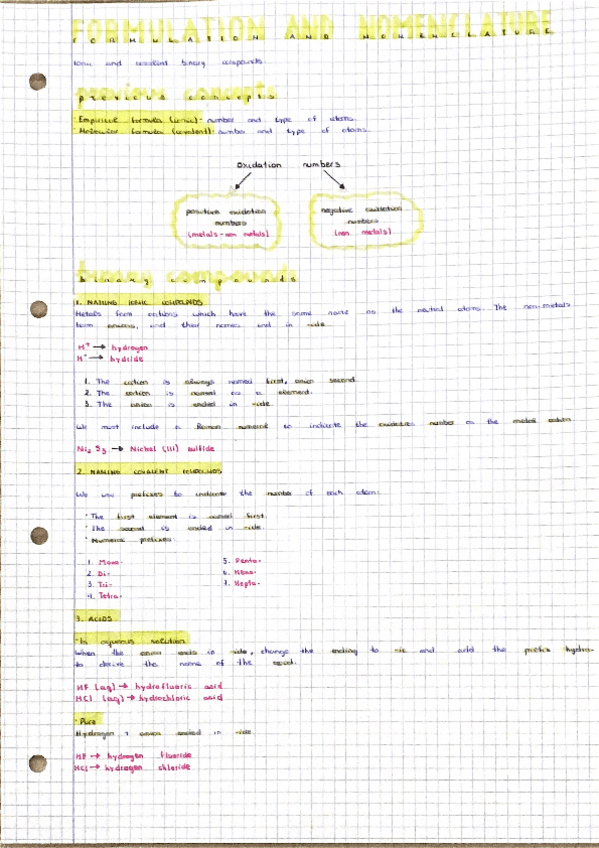 FORMULATION AND NOMENCLATURE
Ionic and covalent binary compounds.
previous concepts
· Empirical formula (ionic)- number and type of atoms.
· Molecular formula (covalent)- number and type of atoms.
Oxidation numbers
positive oxidation numbers (metals-non metals)
negative oxidation numbers (non metals)
binary compounds
1. NAMING IONIC COMPOUNDS
Metals form cations which have the same name as the neutral atoms. The non-metals
form anions, and their names end in -ide.
H⁺ → hydrogen
H⁻ → hydride
1. The cation is always named first, anion second.
2. The cation is named as a element.
3. The anion is ended in -ide.
We must include a Roman numeral to indicate the oxidation number on the metal cation
Ni₂ S₃ → Nichel (III) sulfide
2. NAMING COVALENT COMPOUNDS
We use prefixes to indicate the number of each atom:
· The first element is named first.
· The second is ended in -ide.
· Numeric prefixes:
1. Mono-
2. Di-
3. Tri-
4. Tetra-
5. Penta-
6. Hexa-
7. Hepta-
3. ACIDS
· In aqueous solution
When the anion ends in -ide, change the ending to -ic and add the prefix hydro-
to derive the name of the acid.
HF (aq) → hydrofluoric acid
HCl (aq) → hydrochloric acid
· Pure
Hydrogen + anion ended in -ide
HF → hydrogen fluoride
HCl → hydrogen chloride